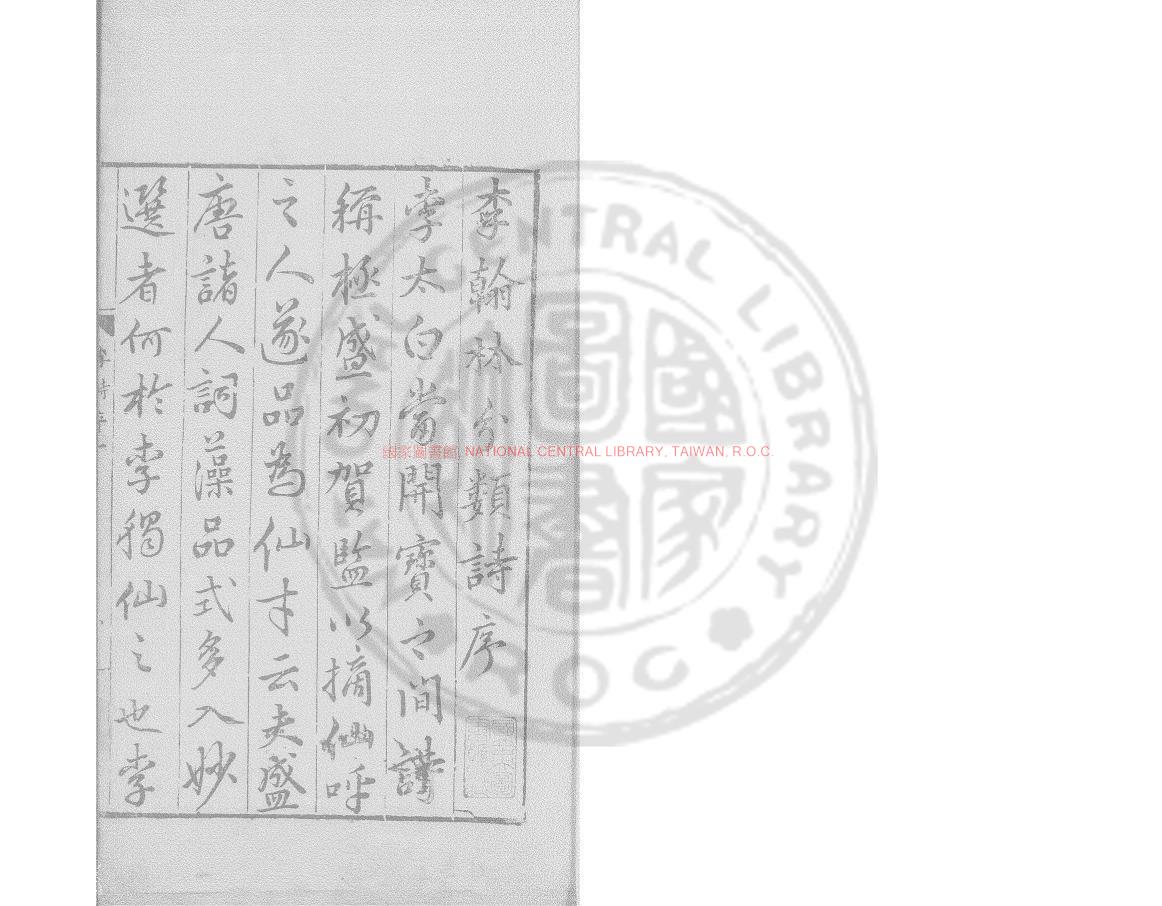 李翰林分類詩序
李太白當開寶之間
稱極盛初賀監以摘仙呼
之人遂品為仙才云夫盛
唐諸人詞藻品式多入妙
選者何於李獨仙之也李
李詩
國家圖書館, NATIONAL CENTRAL LIBRARY, TAIWAN, R.O.C.
CENTRAL LIBRARY
ROC